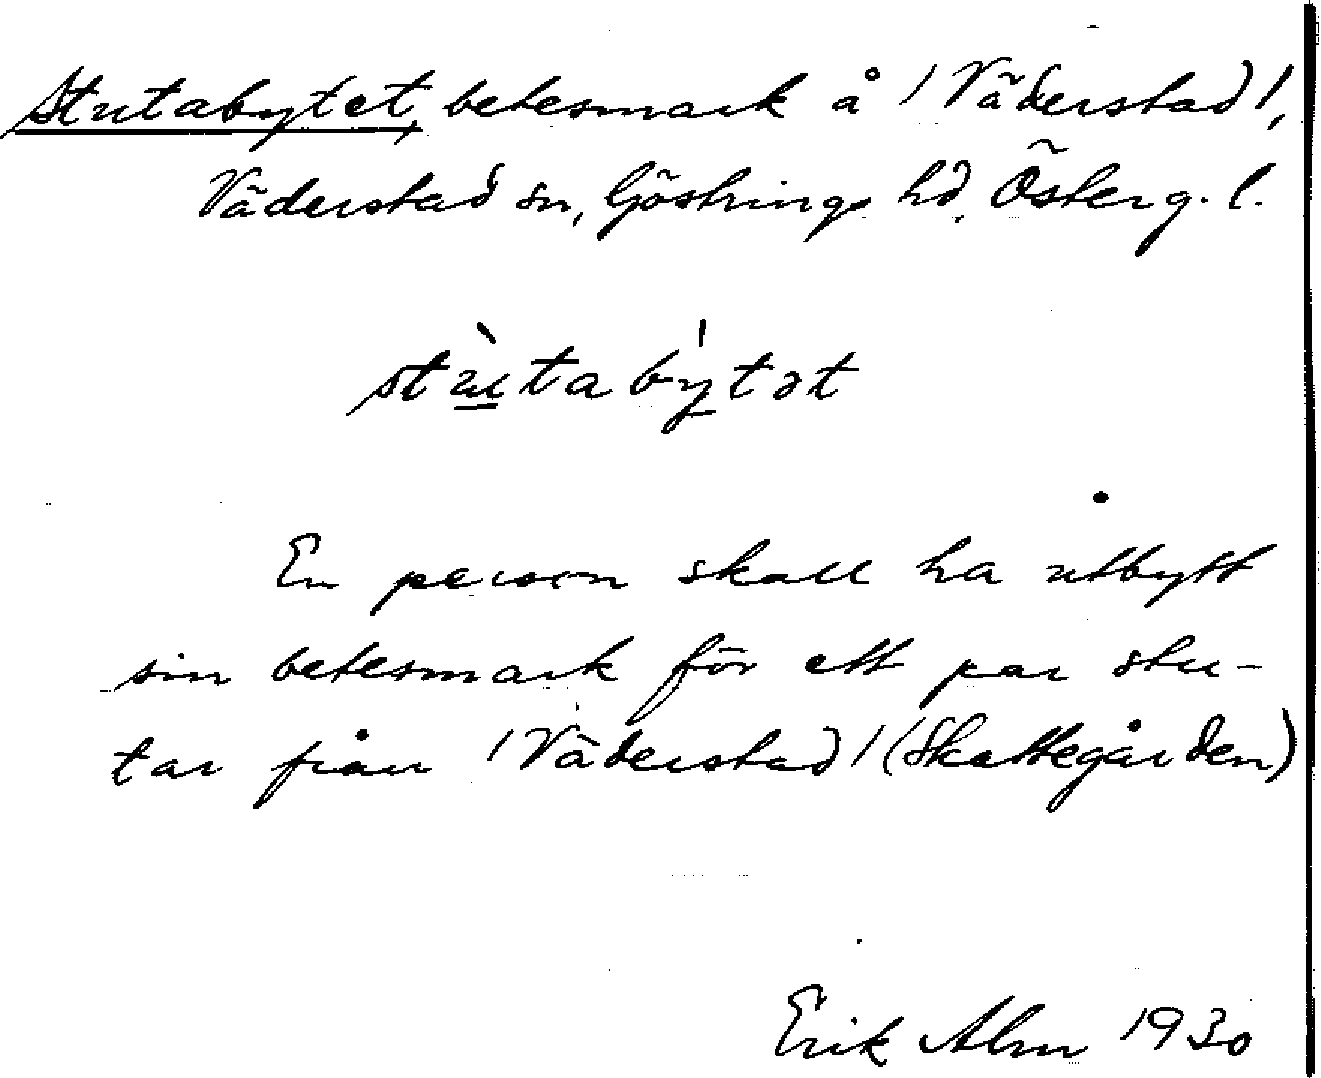 Stutabytet, betesmark å /Väderstad/,
Väderstad sn, Göstrings hd, Österg. l.
stùtabýtət
En person skall ha utbytt
sin betesmark för ett par stu-
tar från /Väderstad/ (Skattegården)
Erik Alm 1930